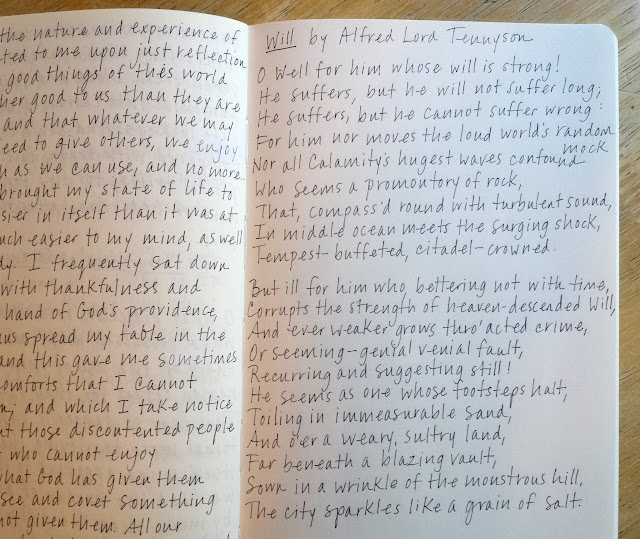 the nature and experience of
ted to me upon just reflection
good things of this world
her good to us than they are
and that whatever we may
eed to give others, we enjoy
h as we can use, and no more.
brought my state of life to
sier in itself than it was at
uch easier to my mind, as well
dy. I frequently sat down
with thankfulness and
hand of God's providence,
us spread my table in the
and this gave me sometimes
omforts that I cannot
m; and which I take notice
ut those discontented people
who cannot enjoy
what God has given them
see and covet something
not given them. All our
Will by Alfred Lord Tennyson
O Well for him whose will is strong!
He suffers, but he will not suffer long;
He suffers, but he cannot suffer wrong:
For him nor moves the loud world's random
mock
Nor all Calamity's hugest waves confound
Who seems a promontory of rock,
That, compass'd round with turbulent sound,
In middle ocean meets the surging shock,
Tempest-buffeted, citadel-crowned.
But ill for him who, bettering not with time,
Corrupts the strength of heaven-descended Will,
And ever weaker grows thro' acted crime,
Or seeming-genial venial fault,
Recurring and suggesting still!
He seems as one whose footsteps halt,
Toiling in immeasurable sand,
And o'er a weary, sultry land,
Far beneath a blazing vault,
Sown in a wrinkle of the monstrous hill,
The city sparkles like a grain of salt.